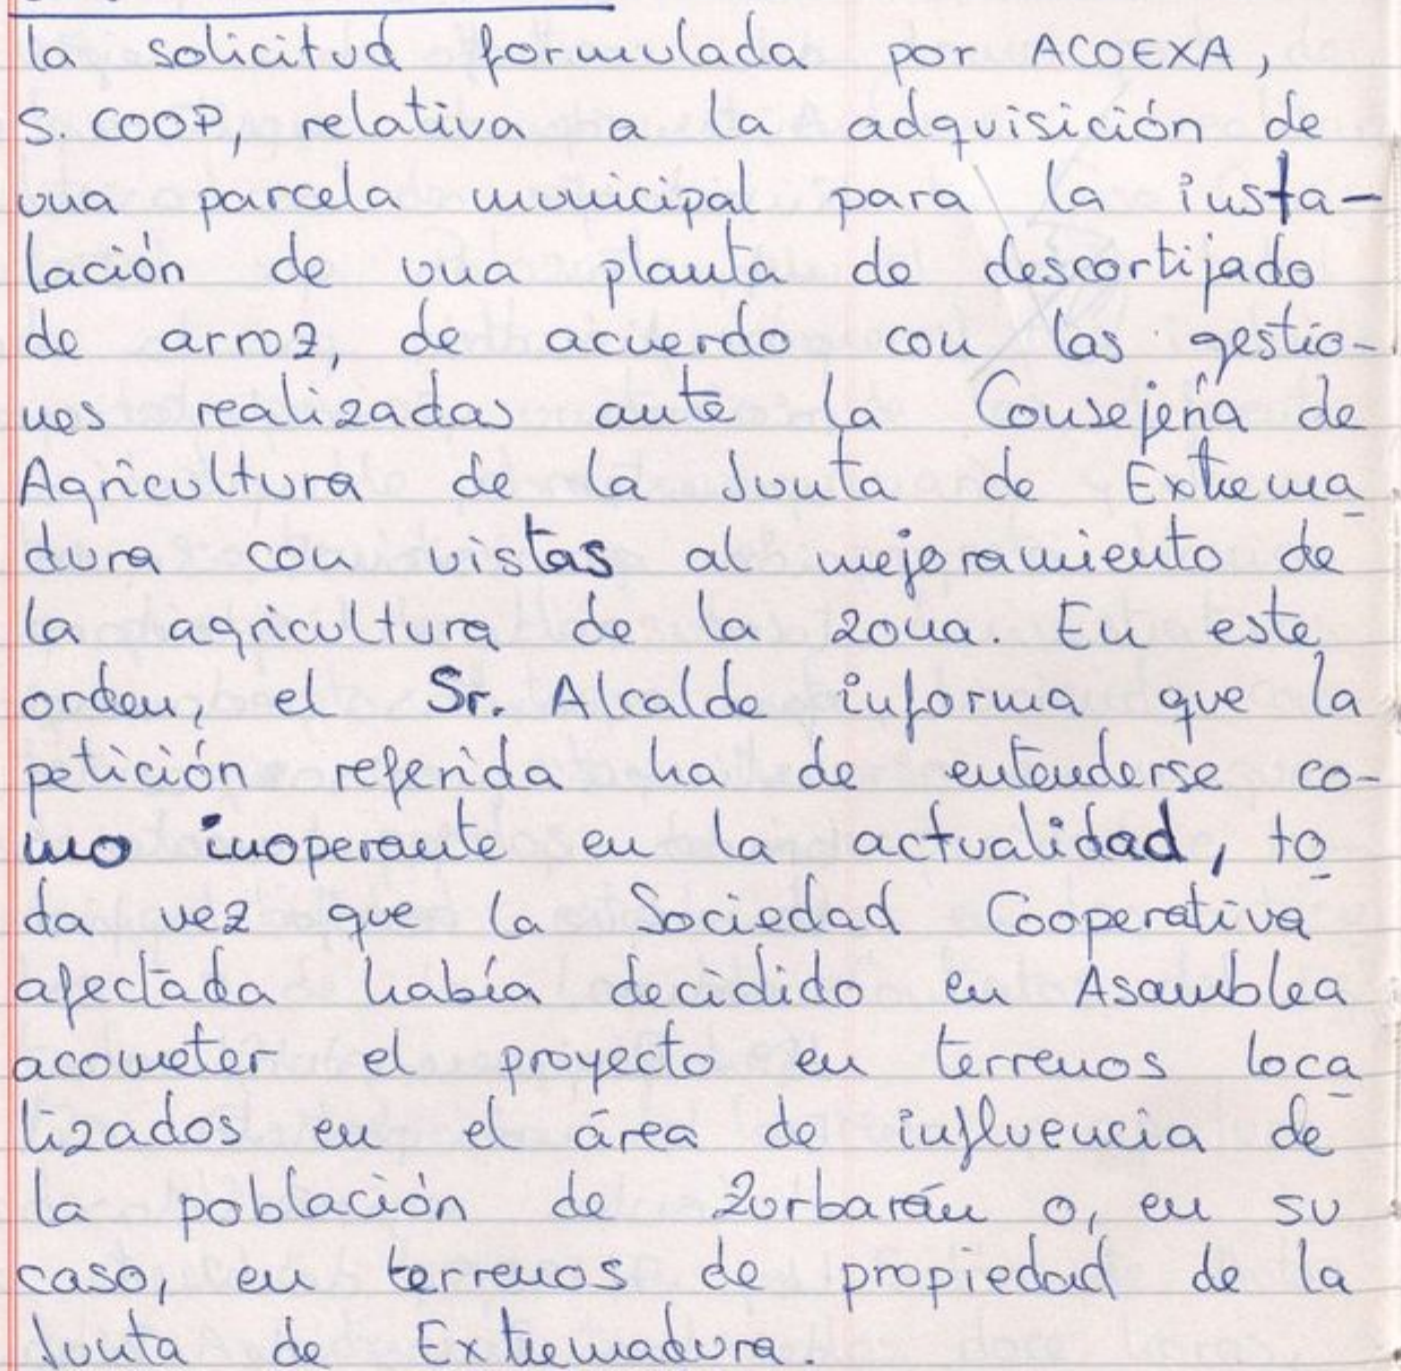 la solicitud formulada por ACOEXA,
S. COOP, relativa a la adquisición de
una parcela municipal para la insta-
lación de una planta de descortijado
de arroz, de acuerdo con las gestio-
nes realizadas ante la Consejería de
Agricultura de la Junta de Extrema
dura con vistas al mejoramiento de
la agricultura de la zona. En este
orden, el Sr. Alcalde informa que la
petición referida ha de entenderse co-
mo inoperante en la actualidad, to
da vez que la Sociedad Cooperativa
afectada había decidido en Asamblea
acometer el proyecto en terrenos loca
lizados en el área de influencia de
la población de Zurbarán o, en su
caso, en terrenos de propiedad de la
Junta de Extremadura.